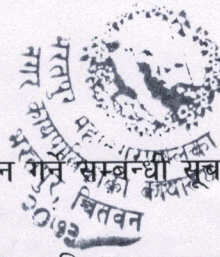 भरतपुर महानगरपालिका
नगर कार्यपालिकाको कार्यालय
भरतपुर, चितवन
२०७३
न गर्ने सम्बन्धी सूच